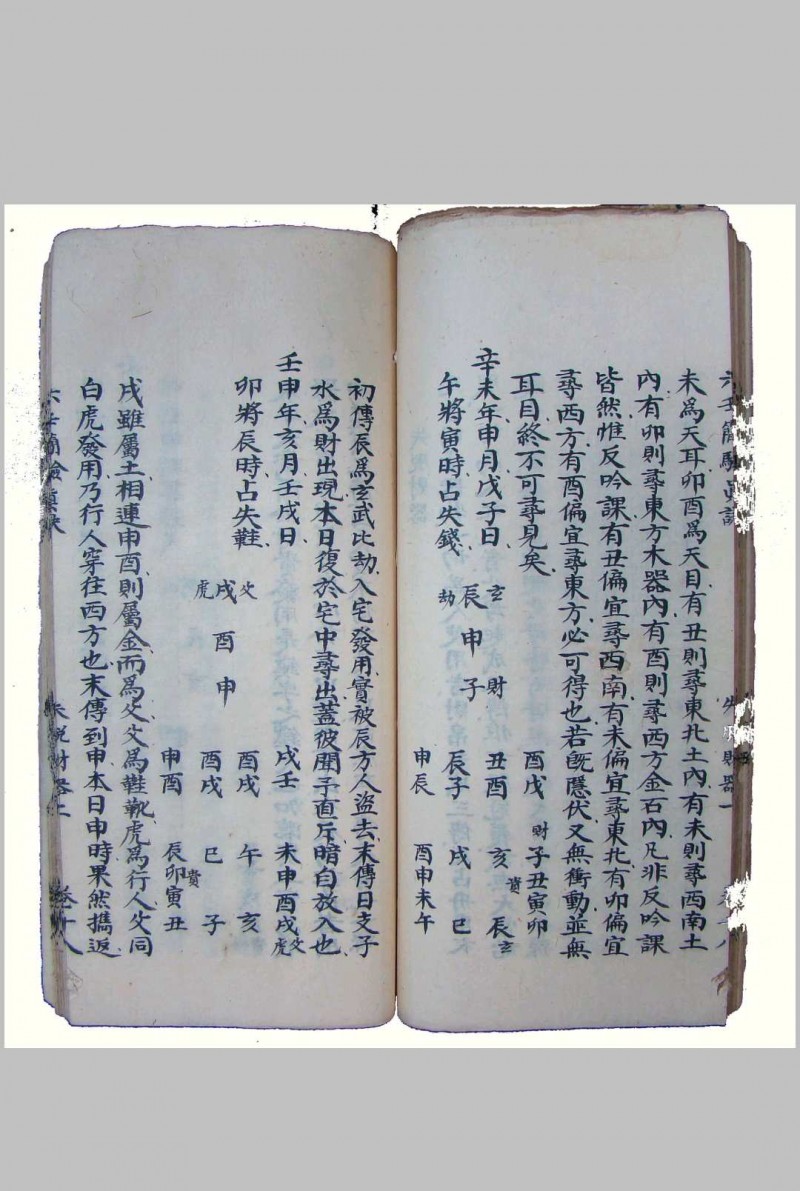 未為天耳卯酉為天目有丑則尋東北土內有未則尋西南土
內有卯則尋東方木器內有酉則尋西方金石內凡非反吟課
皆然惟反吟課有丑偏宜尋西南有未偏宜尋東北有卯偏宜
尋西方有酉偏宜尋東方必可得也若既隱伏又無衝動並無
耳目終不可尋見矣
辛未年申月戊子日
午將寅時占失錢
玄
劫 辰 申 子 財
酉戌 財 子丑寅卯
丑酉 亥 貴 辰 玄
辰子 戌 巳
申辰 酉申未午
初傳辰為玄武比劫入宅發用實被辰方人盜去末傳日支子
水為財出現本日復於宅中尋出蓋彼開子直斥暗自放入也
壬申年亥月壬戌日
卯將辰時占失鞋
虎 戌 父
酉
申
戌壬 未申酉戌 父 虎
酉戌 午 亥
酉戌 巳 子
申酉 辰卯寅丑 貴
戌雖屬土相連申酉則屬金而為父父為鞋靴虎為行人父同
白虎發用乃行人穿往西方也末傳到申本日申時果然攜返
失脫財器二 卷十八